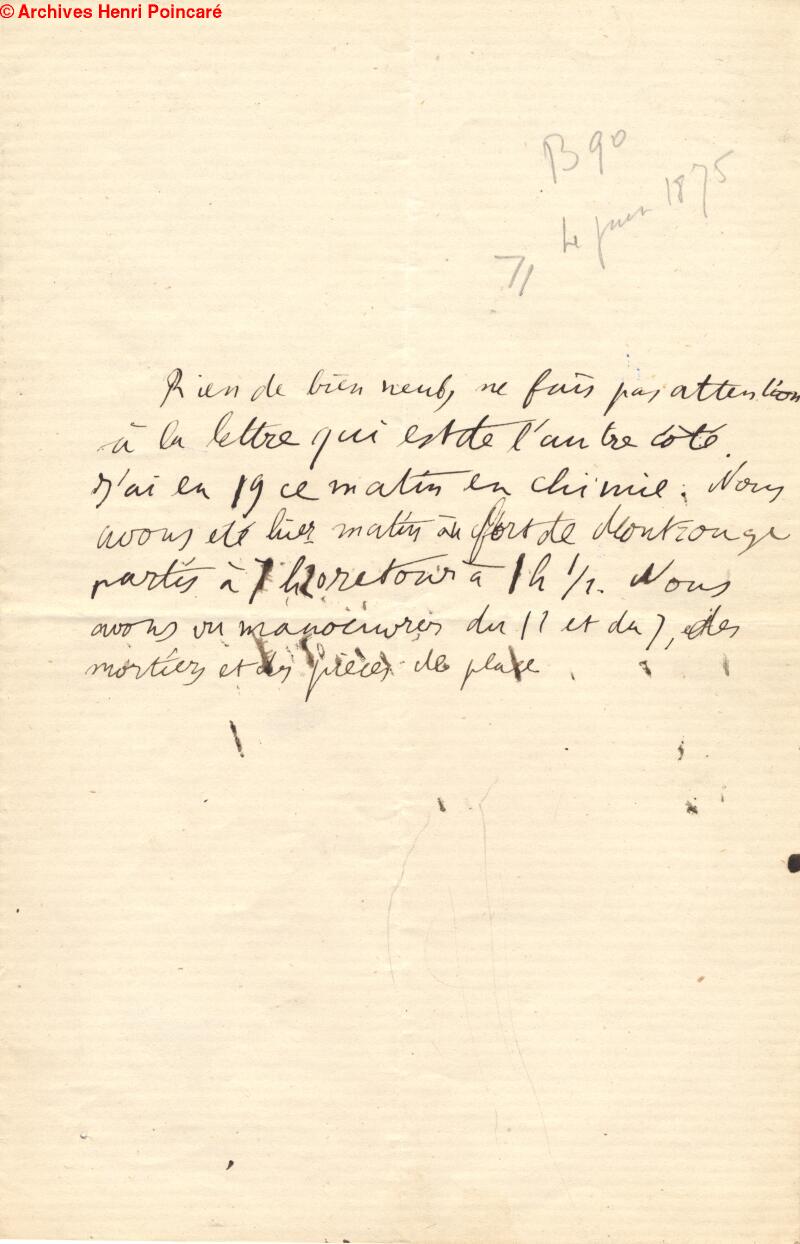 © Archives Henri Poincaré
B 90
4 juin 1875
71
Rien de bien neuf, ne fais pas attention
à la lettre qui est de l'autre côté.
J'ai eu 19 ce matin en chimie. Nous
avons été hier matin au fort de Montrouge
partis à 7 h retour à 1 h 1/2. Nous
avons vu manoeuvrer du 12 et du 7, des
mortiers et des pièces de place